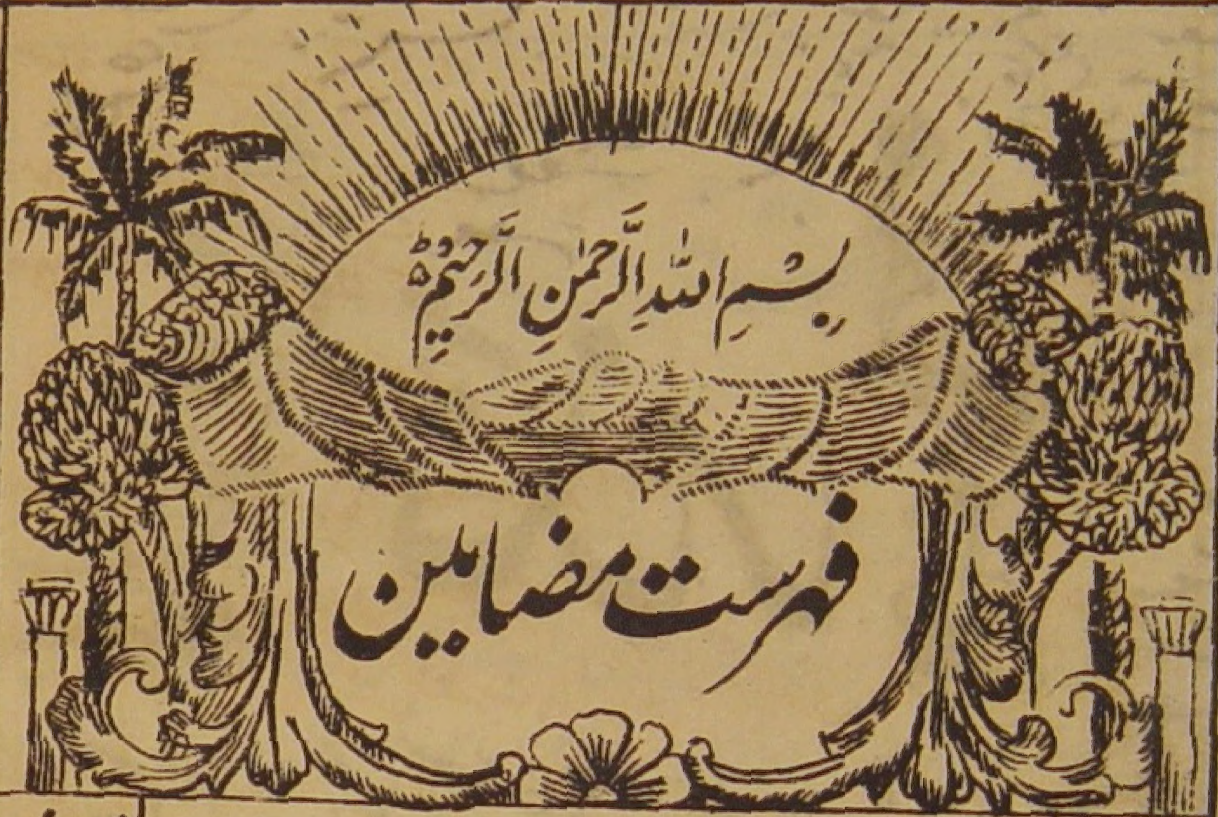 بِسْمِ اللّٰهِ الرَّحْمٰنِ الرَّحِیْمِ ؕ
فہرست مضامین